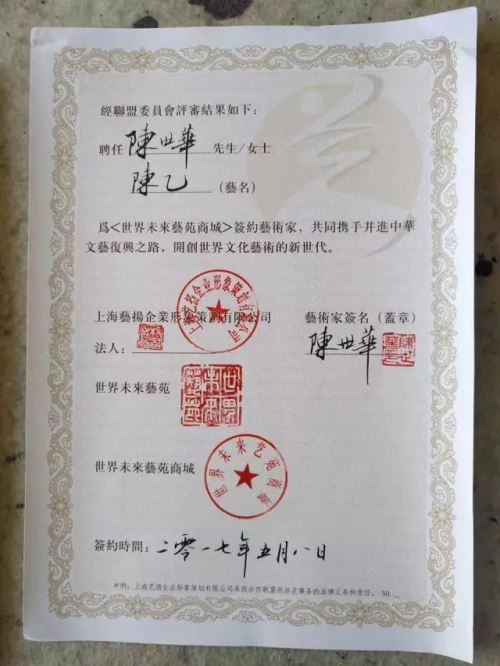 經聯盟委員會評審結果如下：
聘任 陳世華 先生/女士
陳乙 （藝名）
爲<世界未來藝苑商城>簽約藝術家，共同携手并進中華
文藝復興之路，開創世界文化藝術的新世代。
上海藝揚企業形象策劃有限公司
藝術家簽名（蓋章）
法人：
陳世華
世界未來藝苑
世界未來藝苑商城
世界未来艺苑商城
簽約時間：二零一七年五月八日